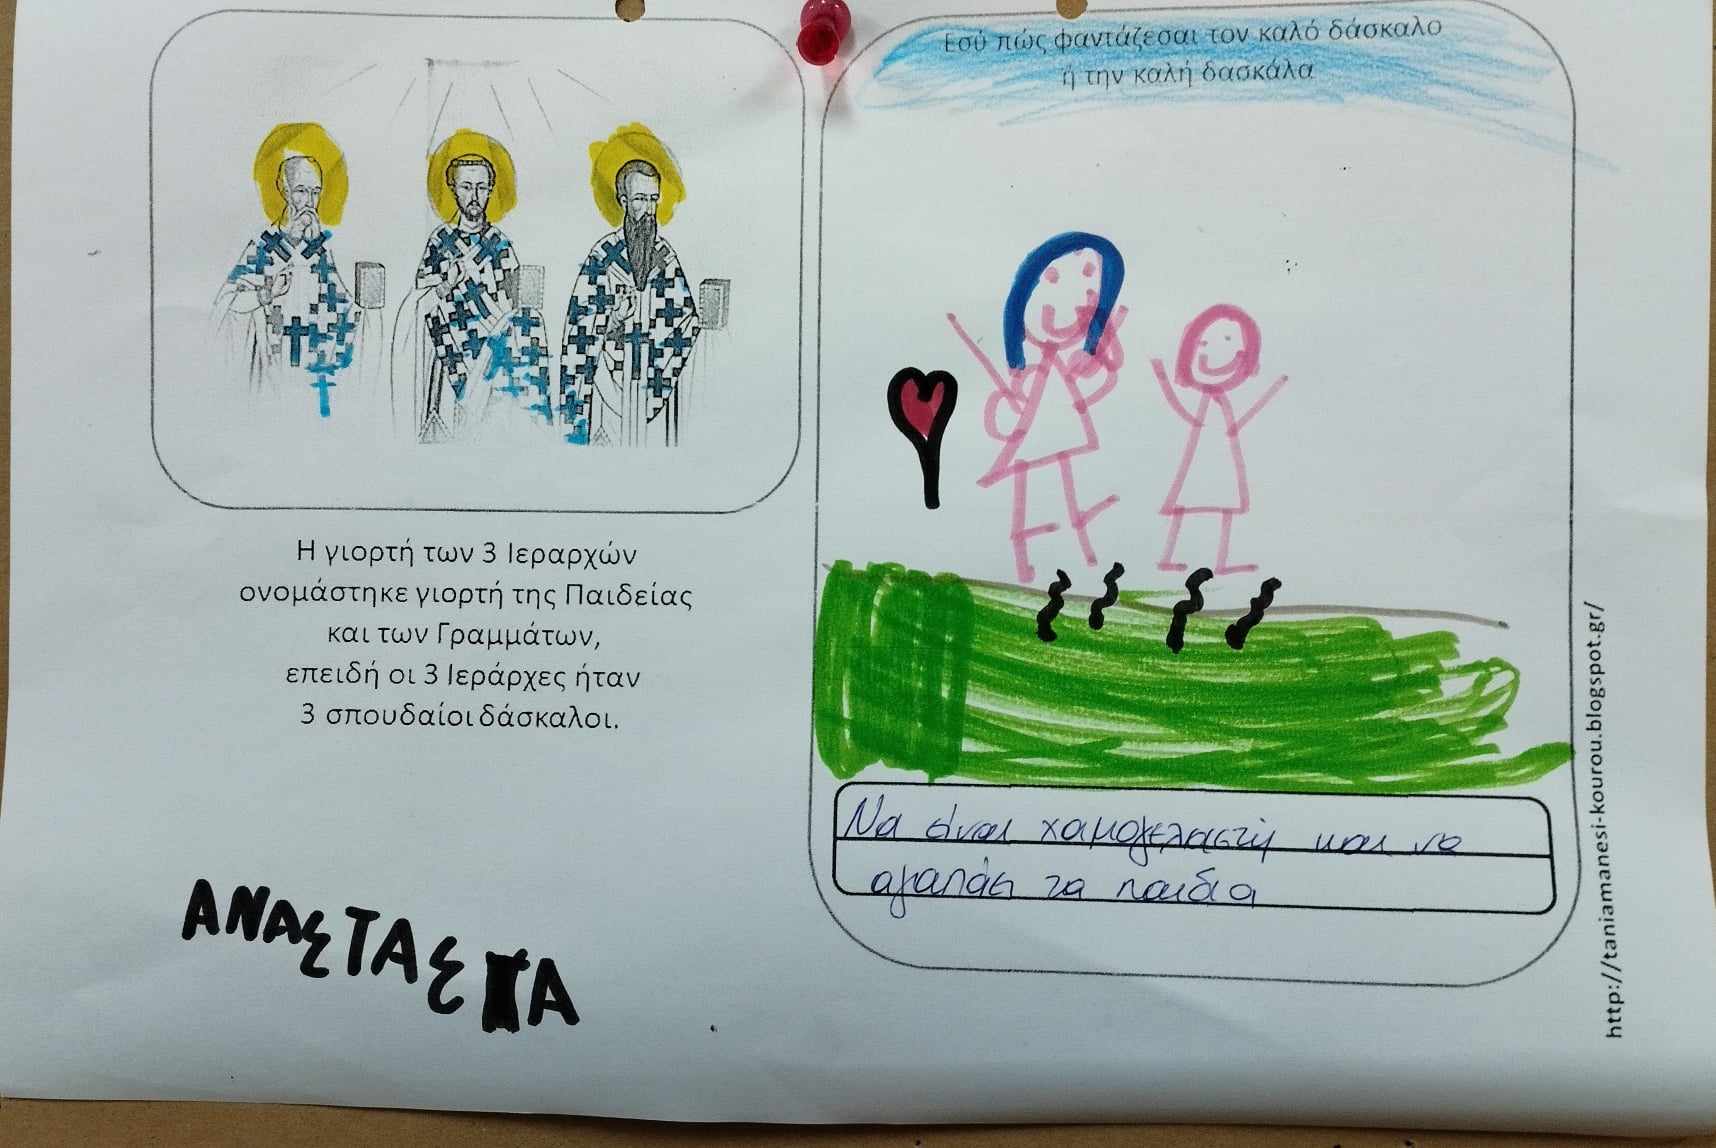 Η γιορτή των 3 Ιεραρχών
ονομάστηκε γιορτή της Παιδείας
και των Γραμμάτων,
επειδή οι 3 Ιεράρχες ήταν
3 σπουδαίοι δάσκαλοι.
ΑΝΑΣΤΑΣΙΑ
Εσύ πώς φαντάζεσαι τον καλό δάσκαλο
ή την καλή δασκάλα
Να είναι χαμογελαστή και να
αγαπάει τα παιδιά
http://taniamanesi-kourou.blogspot.gr/